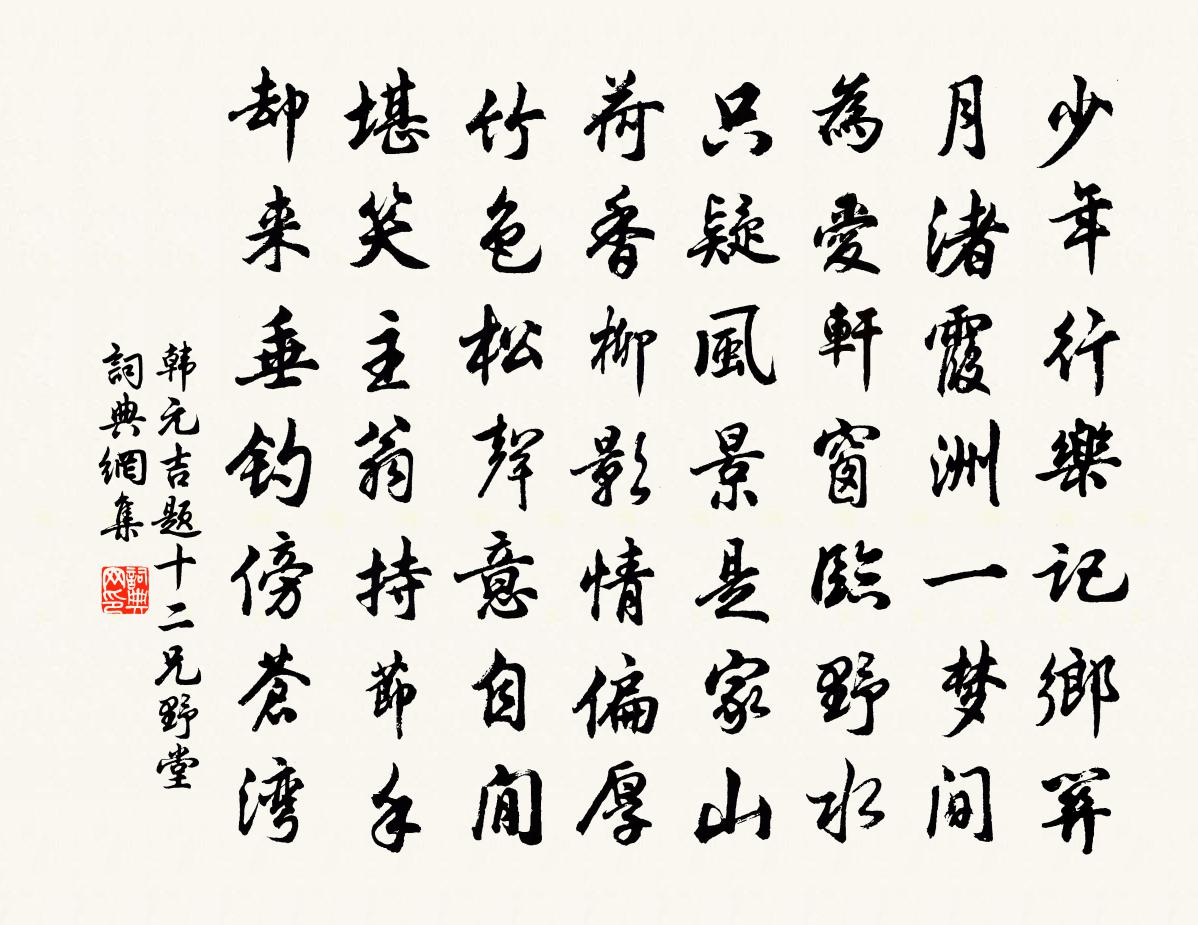 少年行樂記鄉關
月渚霞洲一梦間
為愛軒窗臨野水
只疑風景是家山
荷香柳影情偏厚
竹色松聲意自閒
堪笑主翁持節手
却来垂釣傍蒼湾
韩元吉题十二兄野堂
詞典網集
詞典网印